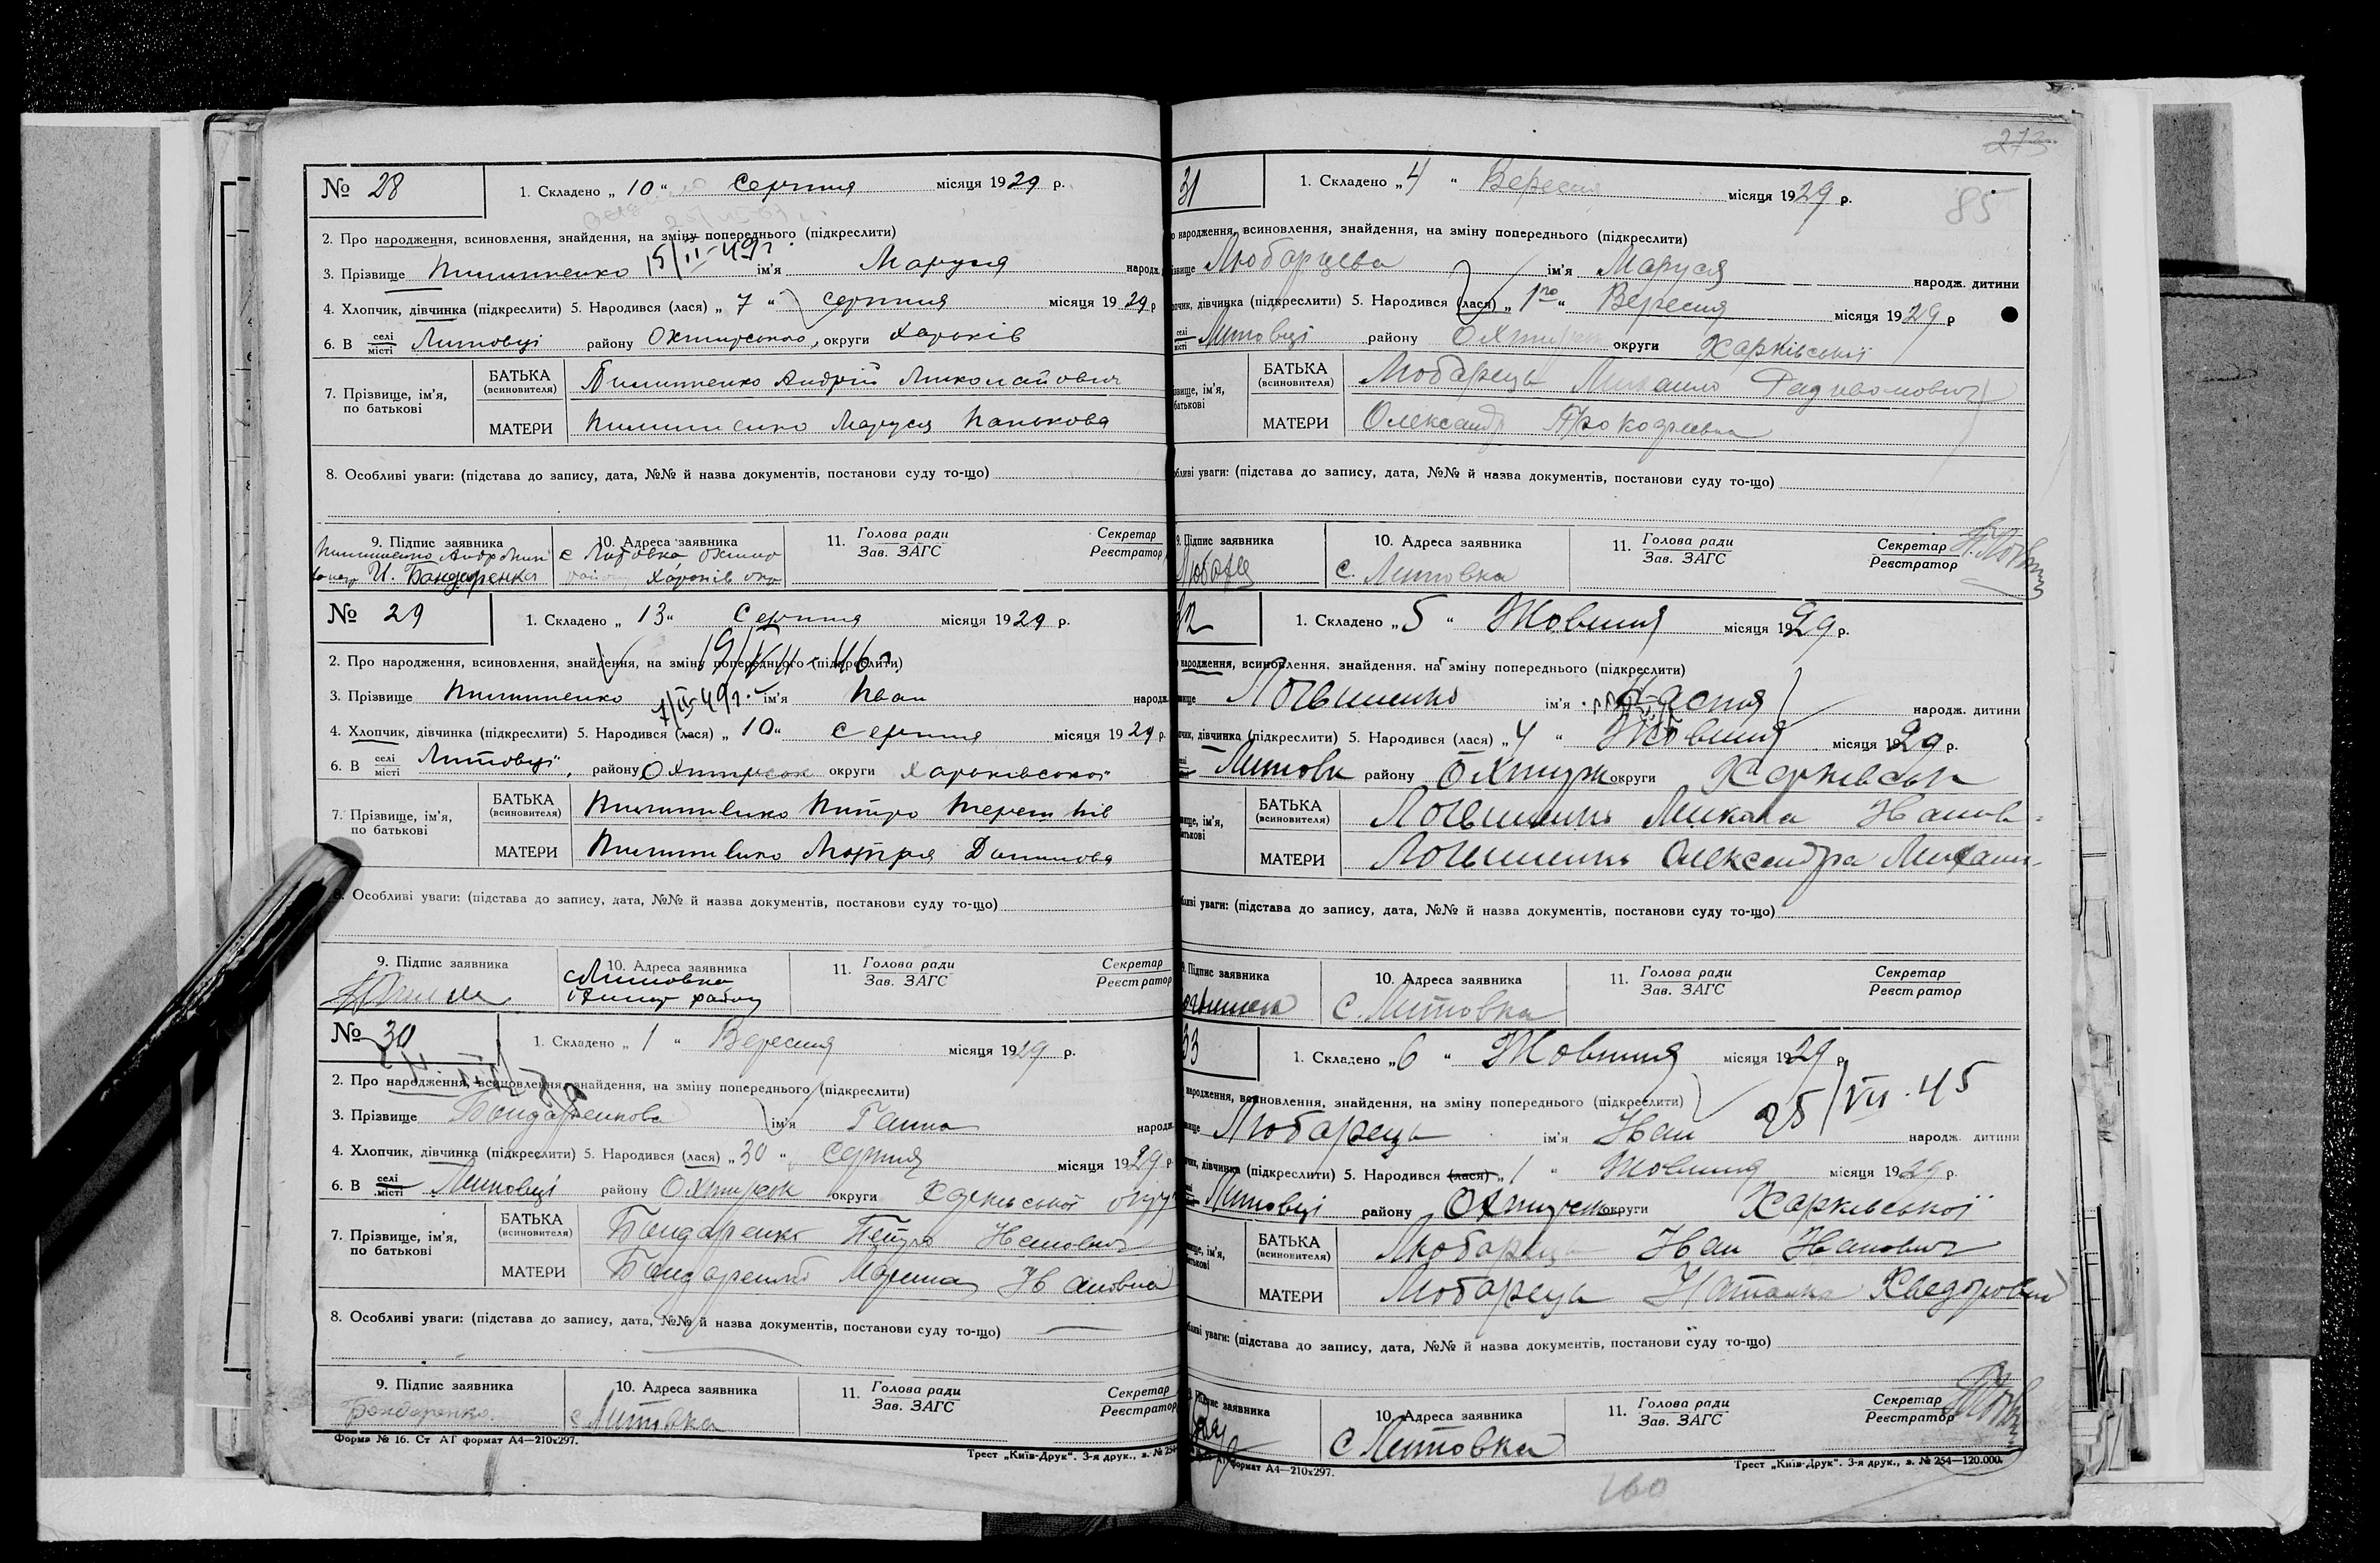 № 28
1. Складено „ 10 “ Серпня місяця 1929 р.
2. Про народження, всиновлення, знайдення, на зміну попереднього (підкреслити)
15/II-49г.
3. Прізвище Пилипенко ім'я Маруся народж.
4. Хлопчик, дівчинка (підкреслити) 5. Народився (лася) „ 7 “ серпня місяця 1929 р
6. В селі місті Литовці району Охтирського, округи Харьків
7. Прізвище, ім'я, по батькові
БАТЬКА (всиновителя) Пилипенко Андрій Миколайович
МАТЕРИ Пилипенко Маруся Панькова
8. Особливі уваги: (підстава до запису, дата, №№ й назва документів, постанови суду то-що)
9. Підпис заявника
10. Адреса заявника
11. Голова ради Зав. ЗАГС
Секретар Реєстратор
И. Бондаренко
с Литовка Охтир
район, Харків окр
№ 29
1. Складено „ 13 “ Серпня місяця 1929 р.
2. Про народження, всиновлення, знайдення, на зміну попереднього (підкреслити)
3. Прізвище Пилипенко ім'я Иван народж.
4. Хлопчик, дівчинка (підкреслити) 5. Народився (лася) „ 10 “ Серпня місяця 1929 р.
6. В селі місті Литовці, району Охтирськ округи Харьківської
7. Прізвище, ім'я, по батькові
БАТЬКА (всиновителя) Пилипенко Питро
МАТЕРИ Пилипенко Мотря Данилова
8. Особливі уваги: (підстава до запису, дата, №№ й назва документів, постанови суду то-що)
9. Підпис заявника
10. Адреса заявника
11. Голова ради Зав. ЗАГС
Секретар Реєстратор
с Литовка
Охтир район
№ 30
1. Складено „ 1 “ Вересня місяця 1929 р.
2. Про народження, всиновлення, знайдення, на зміну попереднього (підкреслити)
3. Прізвище Бондаренкова ім'я Ганна народж.
4. Хлопчик, дівчинка (підкреслити) 5. Народився (лася) „ 30 “ Серпня місяця 1929 р.
6. В селі місті Литовці району Охтирськ округи Харківської округ
7. Прізвище, ім'я, по батькові
БАТЬКА (всиновителя) Бондаренко Петро Иванович
МАТЕРИ Бондаренко Марина Ивановна
8. Особливі уваги: (підстава до запису, дата, №№ й назва документів, постанови суду то-що)
9. Підпис заявника
10. Адреса заявника
11. Голова ради Зав. ЗАГС
Секретар Реєстратор
Бондаренко
с Литовка
Форма № 16. Ст АГ формат А4—210х297.
Трест „Київ-Друк“. 3-я друк., з. № 254
273
85
31
1. Складено „ 4 “ Вересня місяця 1929 р.
народження, всиновлення, знайдення, на зміну попереднього (підкреслити)
Любарцева ім'я Маруся народж. дитини
дівчинка (підкреслити) 5. Народився (лася) „ 1го “ Вересня місяця 1929 р
селі місті Литовці району Охтирк округи Харківської
БАТЬКА (всиновителя) Любарець Михаило Радивонович
МАТЕРИ Олександр
уваги: (підстава до запису, дата, №№ й назва документів, постанови суду то-що)
9. Підпис заявника
10. Адреса заявника
11. Голова ради Зав. ЗАГС
Секретар Реєстратор
с. Литовка
32
1. Складено „ 5 “ Жовтня місяця 1929 р.
народження, всиновлення, знайдення, на зміну попереднього (підкреслити)
Логвиненко ім'я Настя народж. дитини
дівчинка (підкреслити) 5. Народився (лася) „ 4 “ Жовтня місяця 1929 р.
Литовк району Охтирк округи Харківськ
БАТЬКА (всиновителя) Логвиненко Микола Иванов
МАТЕРИ Логвиненко Олександра Михаил
уваги: (підстава до запису, дата, №№ й назва документів, постанови суду то-що)
9. Підпис заявника
10. Адреса заявника
11. Голова ради Зав. ЗАГС
Секретар Реєстратор
с. Литовка
33
1. Складено „ 6 “ Жовтня місяця 1929 р
народження, всиновлення, знайдення, на зміну попереднього (підкреслити)
25/VII.45
Любарець ім'я Иван народж. дитини
дівчинка (підкреслити) 5. Народився (лася) „ 1 “ Жовтня місяця 1929 р.
Литовці району Охтирськ округи Харківської
БАТЬКА (всиновителя) Любарець Иван Иванович
МАТЕРИ Любарець Наталка
уваги: (підстава до запису, дата, №№ й назва документів, постанови суду то-що)
Підпис заявника
10. Адреса заявника
11. Голова ради Зав. ЗАГС
Секретар Реєстратор
с Литовка
формат А4—210х297.
Трест „Київ-Друк“. 3-я друк., з. № 254—120.000.
160